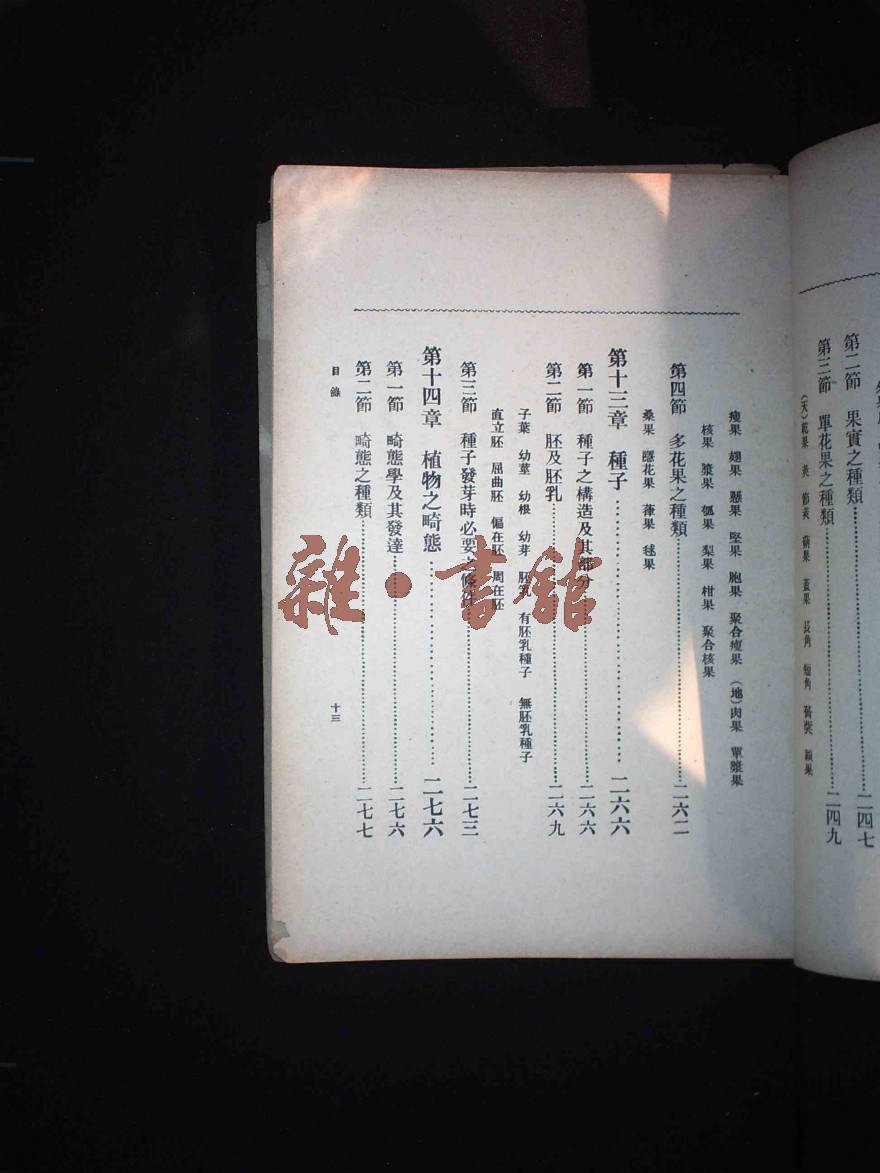 第二節 果實之種類……二四七
第三節 單花果之種類……二四九
(天)乾果 莢 節莢 蒴果 蓋果 長角 短角 蓇葖 穎果
瘦果 翅果 懸果 堅果 胞果 聚合瘦果 (地)肉果 單漿果
核果 漿果 瓠果 梨果 柑果 聚合核果
第四節 多花果之種類……二六二
桑果 隱花果 毬果
第十三章 種子……二六六
第一節 種子之構造及其部分……二六六
第二節 胚及胚乳……二六九
子葉 幼莖 幼根 幼芽 胚乳 有胚乳種子 無胚乳種子
直立胚 屈曲胚 偏在胚 周在胚
第三節 種子發芽時必要之條件……二七三
第十四章 植物之畸態……二七六
第一節 畸態學及其發達……二七六
第二節 畸態之種類……二七七
目錄
十三
雜·書館